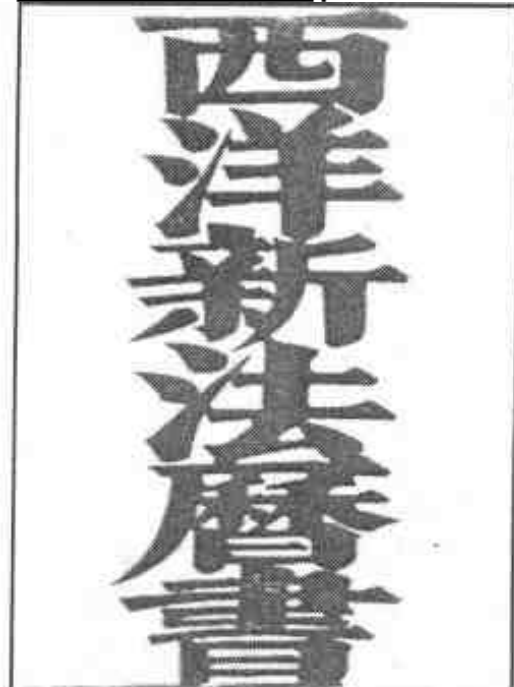 西洋新法曆書